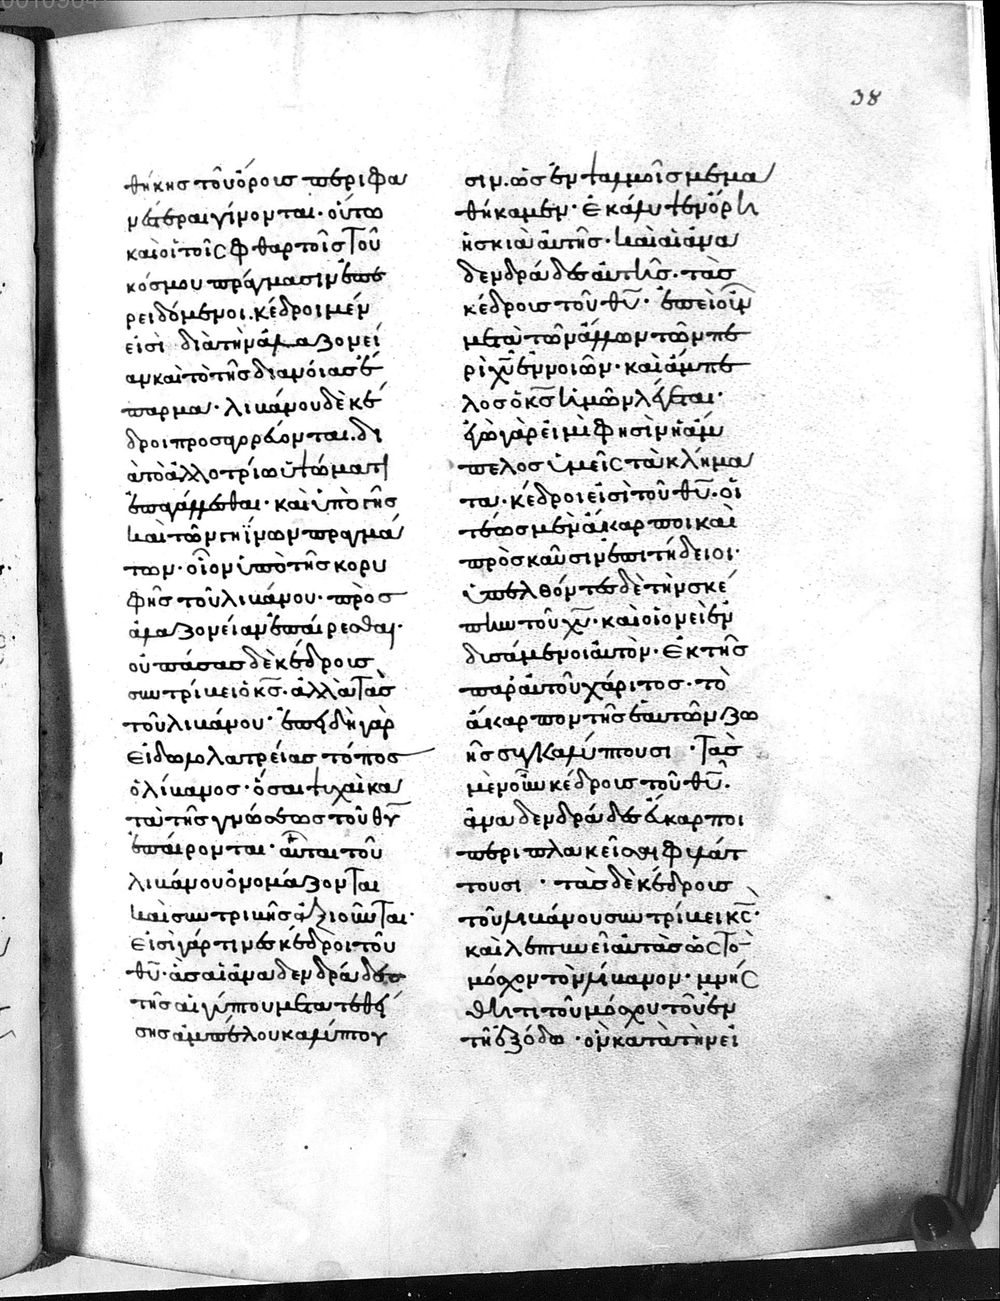 38
θήκης τοῦ ὄροις περιφα
νέστεραι γίνονται· οὕτω
καὶ οἱ τοῖς φθαρτοῖς τοῦ
κόσμου πράγμασιν ἐπε
ρειδόμενοι. κέδροι μέν
εἰσι διὰ τὴν ἀλαζονεί
αν καὶ τὸ τῆς διανοίας ἔ
παρμα· λιβάνου δὲ κέ
δροι προσαγορεύονται. δι
ἀπὸ ἀλλοτρίω ὑψώματι
ἐπαγάλλεσθαι· καὶ ὑπὸ γῆς
καὶ τῶν γηΐνων πραγμά
των· οἷον ὑπὸ τῆς κορυ
φῆς τοῦ λιβάνου· πρὸς
ἀλαζονείαν ἐπαίρεσθαι·
οὐ πάσας δὲ κέδροις
συντρίβει ὁ κς· ἀλλὰ τὰς
τοῦ λιβάνου· ἐπειδὴ γὰρ
εἰδωλολατρείας τόπος
ὁ λίβανος· ὅσαι ψυχαὶ κα
τὰ τῆς γνώσεως τοῦ θυ
ἐπαίρονται· αὗται τοῦ
λιβάνου ὀνομάζονται
καὶ συντριβῆς ἀξιοῦνται·
εἰσὶ γάρ τινες κέδροι τοῦ
θυ· ἃς αἱ ἀναδενδράδες
τῆς αἰγύπου μετατεθεί
σης ἀμπέλου καλύπτου
σιν. ὡς ἐν ψαλμοῖς μεμα
θήκαμεν· ἐκάλυψεν ὄρη
ἡ σκιὰ αὐτῆς· καὶ αἱ ἀνα
δενδράδες αὐτῆς· τὰς
κέδροις τοῦ θυ· ἐπεὶ οὖν
μετὰ τῶν ἄλλων τῶν πε
ρὶ χυ ἐννοιῶν· καὶ ἄμπε
λος ὁ κς ἡμῶν λέγεται·
ἐγὼ γὰρ εἰμι φησὶν ἡ ἄμ
πελος ὑμεῖς τὰ κλήμα
τα· κέδροι εἰσὶ τοῦ θυ· οἱ
τέως μὲν ἄκαρποι καὶ
πρὸς καῦσιν ἐπιτήδειοι·
ὑπελθόντες δὲ τὴν σκέ
πην τοῦ χυ· καὶ οἱονεὶ ἐν
δυσάμενοι αὐτὸν· ἐκ τῆς
παρ αὐτοῦ χάριτος· τὸ
ἄκαρπον τῆς ἑαυτῶν ζω
ῆς συγκαλύπτουσι · τὰς
μὲν οὖν κέδροις τοῦ θυ·
ἀναδενδράδες ἔγκαρποι
περιπλακεῖσαι φυλάτ
τουσι · τὰς δὲ κέδροις
τοῦ λιβάνου συντρίβει κς·
καὶ λεπτυνεῖ αὐτὰς ὡς τὸ
μόσχον τὸν λίβανον· μνής
θητι τοῦ μόσχου τοῦ ἐν
τῇ ἐξόδω · ὃν κατὰ τὴν εἰ